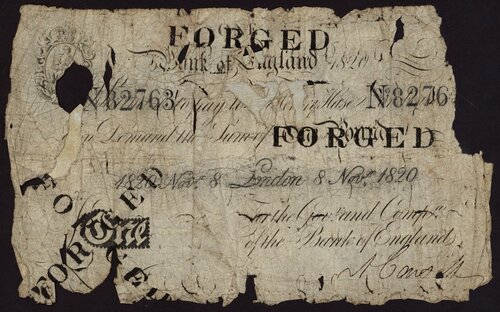 FORGED
Bank of England 1820
No 82763 pay to No 8276
on Demand the Sum of One Pound
FORGED
1820 Novr. 8 London 8 Novr. 1820
For the Govr. and Compa.
of the Bank of England
FORGED
One